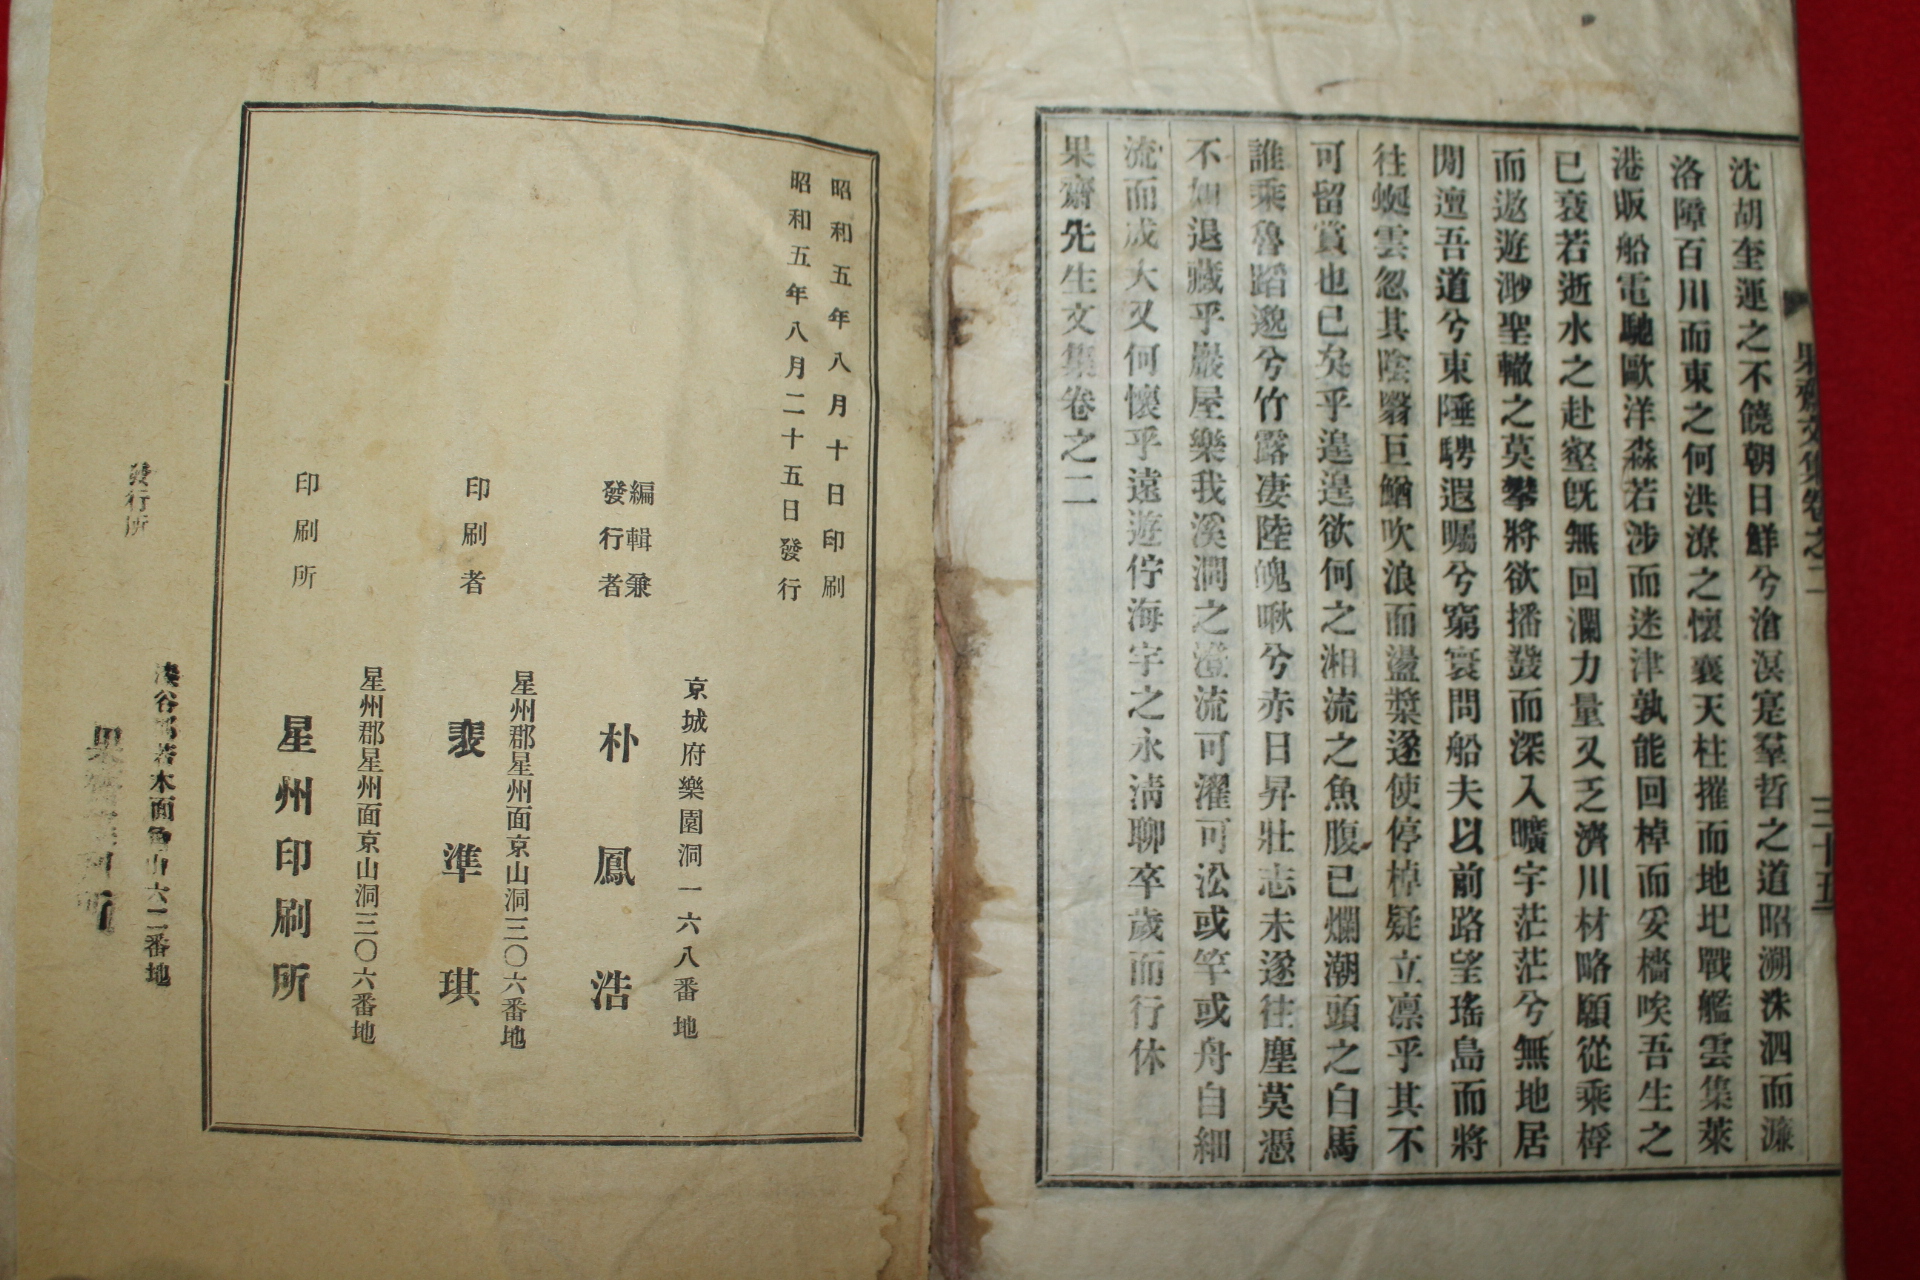 果齋文集卷之二
三十五
沈胡奎運之不饒朝日鮮兮滄溟寔羣哲之道昭溯洙泗而濂
洛障百川而東之何洪潦之懷襄天柱摧而地圮戰艦雲集萊
港販船電馳歐洋淼若涉而迷津孰能回棹而妥檣唉吾生之
已衰若逝水之赴壑旣無回瀾力量又乏濟川材略願從乘桴
而遨遊渺聖轍之莫攀將欲播鼗而深入曠宇茫茫兮無地居
閒澶吾道兮東陲騁遐矚兮窮寰問船夫以前路望瑤島而將
往蜒雲忽其陰翳巨鰌吹浪而盪槳遂使停棹疑立凛乎其不
可留賞也已矣乎遑遑欲何之湘流之魚腹已爛潮頭之白馬
誰乘魯蹈邈兮竹露凄陸魄啾兮赤日昇壯志未遂往塵莫憑
不如退藏乎巖屋樂我溪澗之澄流可濯可泛或竿或舟自細
流而成大又何懷乎遠遊佇海宇之永淸聊卒歲而行休
果齋先生文集卷之二
昭和五年八月十日印刷
昭和五年八月二十五日發行
京城府樂園洞一六八番地
編輯兼
發行者
朴鳳浩
星州郡星州面京山洞三〇六番地
印刷者
裵準琪
星州郡星州面京山洞三〇六番地
印刷所
星州印刷所
谷郡若木面山六二番地
發行所
果齋所